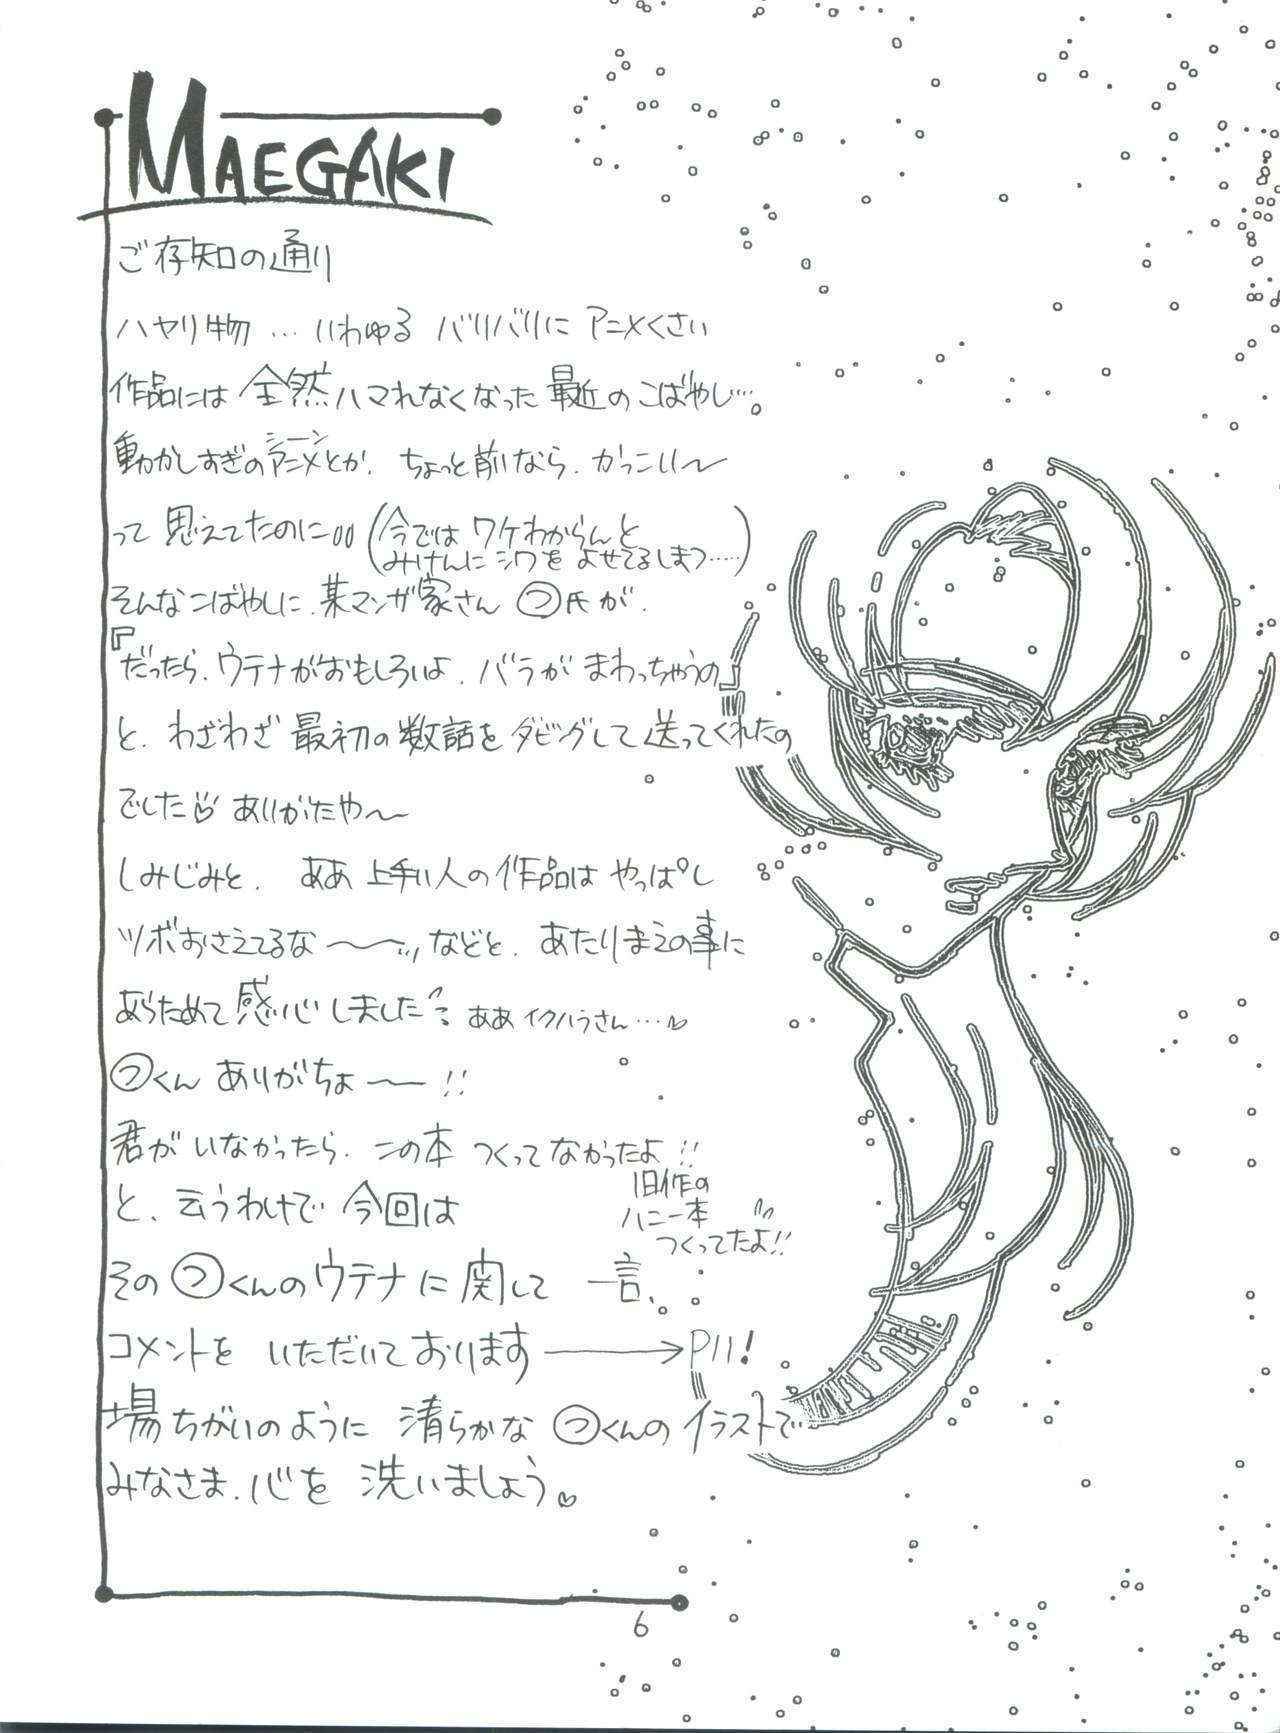 MAEGAKI
ご存知の通り
ハヤリ物…いわゆる バリバリに アニメくさい
作品には 全然ハマれなくなった 最近の こばやし…。
動かしすぎのアニメとか、ちょっと前なら、かっこいい〜
シーン
って 思えてたのに (今では ワケわからんと
みけんに シワを よせてるしまつ……)
そんなこばやしに、某マンガ家さん つ氏が、
『だったら、ウテナがおもしろいよ、バラが まわっちゃうの』
と、わざわざ 最初の数話を ダビングして 送ってくれたの
でした♡ ありがたや〜
しみじみと、ああ 上手い人の 作品は やっぱし
ツボおさえてるな〜〜ッ などと、あたりまえの事に
あらためて 感心しました ああ イクハラさん…♡
つくん ありがちょ〜!!
君が いなかったら、この本 つくってなかったよ!!
旧作の
ハニー本
つくってたよ!!
と、云うわけで 今回は
その つくんの ウテナに 関して 一言、
コメントを いただいております → P11!
場ちがいのように 清らかな つくんの イラストで
みなさま、心を 洗いましょう♡
6